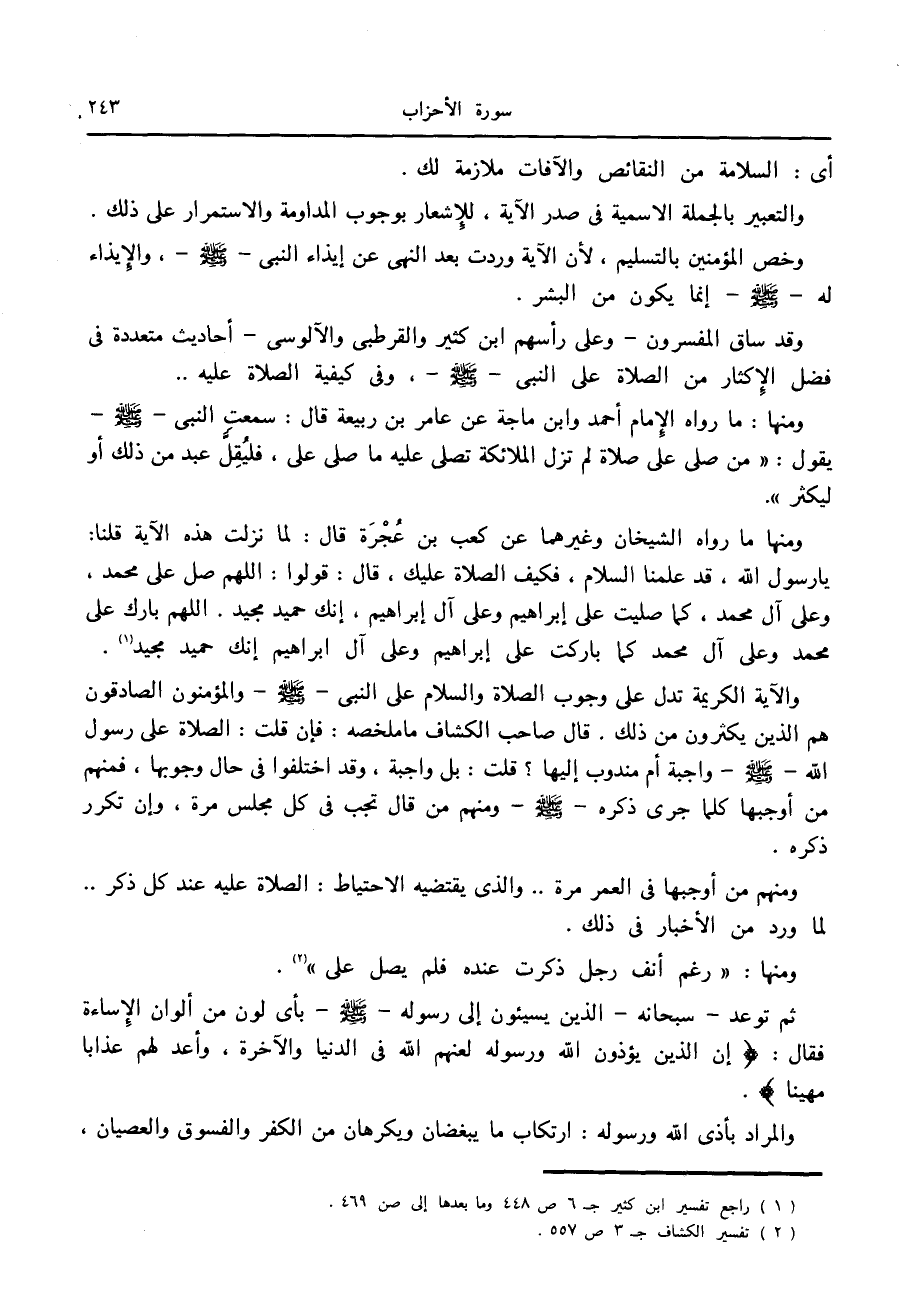 سورة الأحزاب ٢٤٣
أى : السلامة من النقائص والآفات ملازمة لك .
والتعبير بالجملة الاسمية فى صدر الآية ، للإشعار بوجوب المداومة والاستمرار على ذلك .
وخص المؤمنين بالتسليم ، لأن الآية وردت بعد النهى عن إيذاء النبى – ﷺ – ، والإيذاء
له – ﷺ – إنما يكون من البشر .
وقد ساق المفسرون – وعلى رأسهم ابن كثير والقرطبى والآلوسى – أحاديث متعددة فى
فضل الإكثار من الصلاة على النبى – ﷺ – ، وفى كيفية الصلاة عليه ..
ومنها : ما رواه الإمام أحمد وابن ماجة عن عامر بن ربيعة قال : سمعت النبى – ﷺ –
يقول : « من صلى على صلاة لم تزل الملائكة تصلى عليه ما صلى على ، فليُقِلَّ عبد من ذلك أو
ليكثر ».
ومنها ما رواه الشيخان وغيرهما عن كعب بن عُجْرَة قال : لما نزلت هذه الآية قلنا:
يارسول الله ، قد علمنا السلام ، فكيف الصلاة عليك ، قال : قولوا : اللهم صل على محمد ،
وعلى آل محمد ، كما صليت على إبراهيم وعلى آل إبراهيم ، إنك حميد مجيد . اللهم بارك على
محمد وعلى آل محمد كما باركت على إبراهيم وعلى آل ابراهيم إنك حميد مجيد(١) .
والآية الكريمة تدل على وجوب الصلاة والسلام على النبى – ﷺ – والمؤمنون الصادقون
هم الذين يكثرون من ذلك . قال صاحب الكشاف ماملخصه : فإن قلت : الصلاة على رسول
الله – ﷺ – واجبة أم مندوب إليها ؟ قلت : بل واجبة ، وقد اختلفوا فى حال وجوبها ، فمنهم
من أوجبها كلما جرى ذكره – ﷺ – ومنهم من قال تجب فى كل مجلس مرة ، وإن تكرر
ذكره .
ومنهم من أوجبها فى العمر مرة .. والذى يقتضيه الاحتياط : الصلاة عليه عند كل ذكر ..
لما ورد من الأخبار فى ذلك .
ومنها : « رغم أنف رجل ذكرت عنده فلم يصل على »(٢) .
ثم توعد – سبحانه – الذين يسيئون إلى رسوله – ﷺ – بأى لون من ألوان الإساءة
فقال : ﴿ إن الذين يؤذون الله ورسوله لعنهم الله فى الدنيا والآخرة ، وأعد لهم عذابا
مهينا ﴾ .
والمراد بأذى الله ورسوله : ارتكاب ما يبغضان ويكرهان من الكفر والفسوق والعصيان ،
( ١ ) راجع تفسير ابن كثير جـ ٦ ص ٤٤٨ وما بعدها إلى صن ٤٦٩ .
( ٢ ) تفسير الكشاف جـ ٣ ص ٥٥٧ .